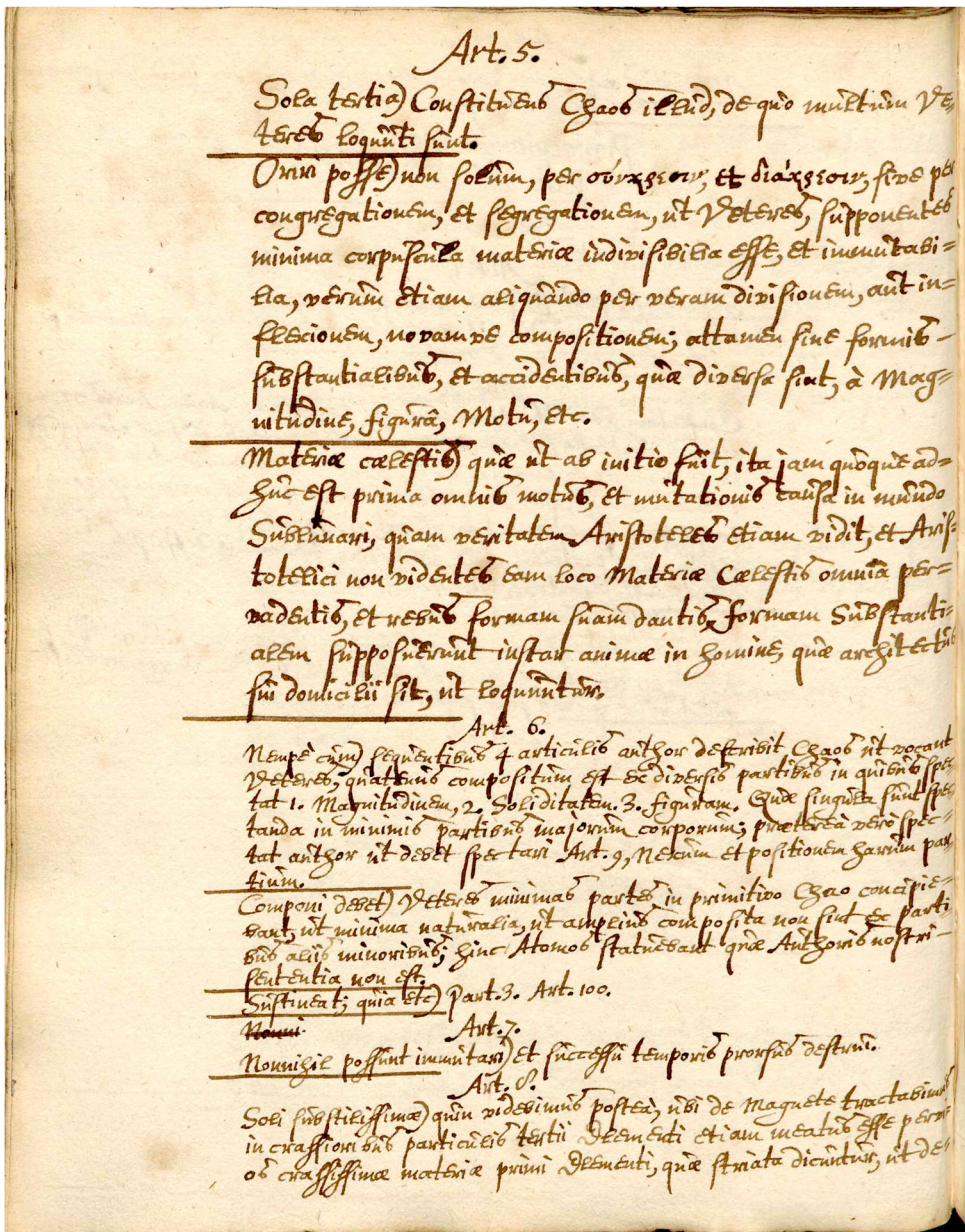 Art. 5.
Sola tertia) Constituens Chaos illud, de quo multum Ve=
teres loquuti sunt.
Oriri posse) non solum, per σύγκρισιν, et διάκρισιν, sive per
congregationem, et segregationem, ut Veteres, supponentes
minima corpuscula materiæ indivisibilia esse, et immutabi=
lia, verum etiam aliquando per veram divisionem, aut in=
flexionem, novamve compositionem; attamen sine formis –
substantialibus, et accidentibus, quæ diversa sint, à Mag=
nitudine, figurâ, Motu, etc.
Materiæ cælestis) quæ ut ab initio fuit, ita jam quoque ad=
huc est prima omnis motus, et mutationis causa in mundo
Sublunari, quam veritatem Aristoteles etiam vidit, et Aris=
totelici non videntes eam loco Materiæ Cælestis omnia per=
vadentis, et rebus formam suam dantis, formam Substanti=
alem supposuerunt instar animæ in homine, quæ architectus
sui domicilii sit, ut loquuntur.
Art. 6.
Nempè cum) sequentibus 4 articulis author describit Chaos ut vocant
Veteres, quatenus compositum est ex diversis partibus in quibus spec
tat 1. Magnitudinem, 2. Soliditatem. 3. figuram. Quæ singula sunt spec
tanda in minimis partibus majorum corporum; præterea verò spec=
tat author ut debet spectari Art. 9, Nexum et positionem harum par
tium.
Componi debet) Veteres minimas partes in primitivo Chao concipie=
bant, ut minima naturalia, ut amplius composita non sint ex parti
bus aliis minoribus; hinc Atomos statuebant quæ Authoris nostri –
sententia non est.
Sustineat; quia etc) Part. 3. Art. 100.
Nonni
Art. 7.
Nonnihil possunt immutari) et successu temporis prorsus destrui.
Art. 8.
Soli subtilissimæ) quin videbimus posteà, ubi de Magnete tractabimus
in crassioribus particulis tertii Elementi etiam meatus esse pervi
os crassissimæ materiæ primi Elementi, quæ striata dicuntur, ut de=